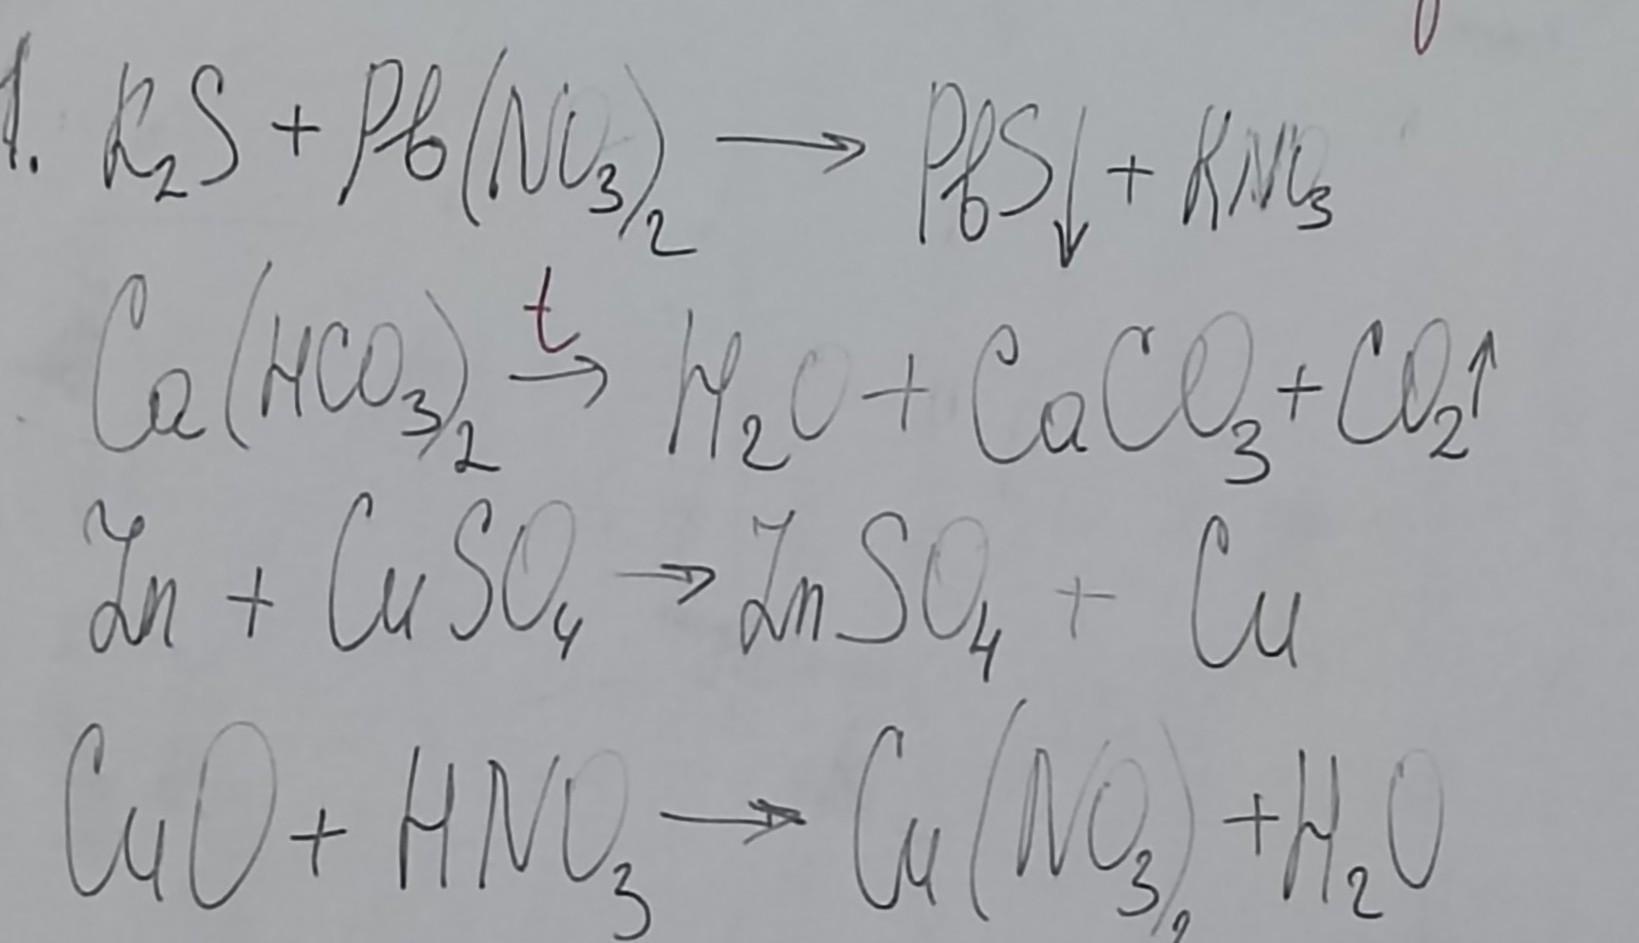 1. K₂S + Pb(NO₃)₂ → PbS↓ + KNO₃
Ca(HCO₃)₂ →ᵗ H₂O + CaCO₃ + CO₂↑
Zn + CuSO₄ → ZnSO₄ + Cu
CuO + HNO₃ → Cu(NO₃)₂ + H₂O